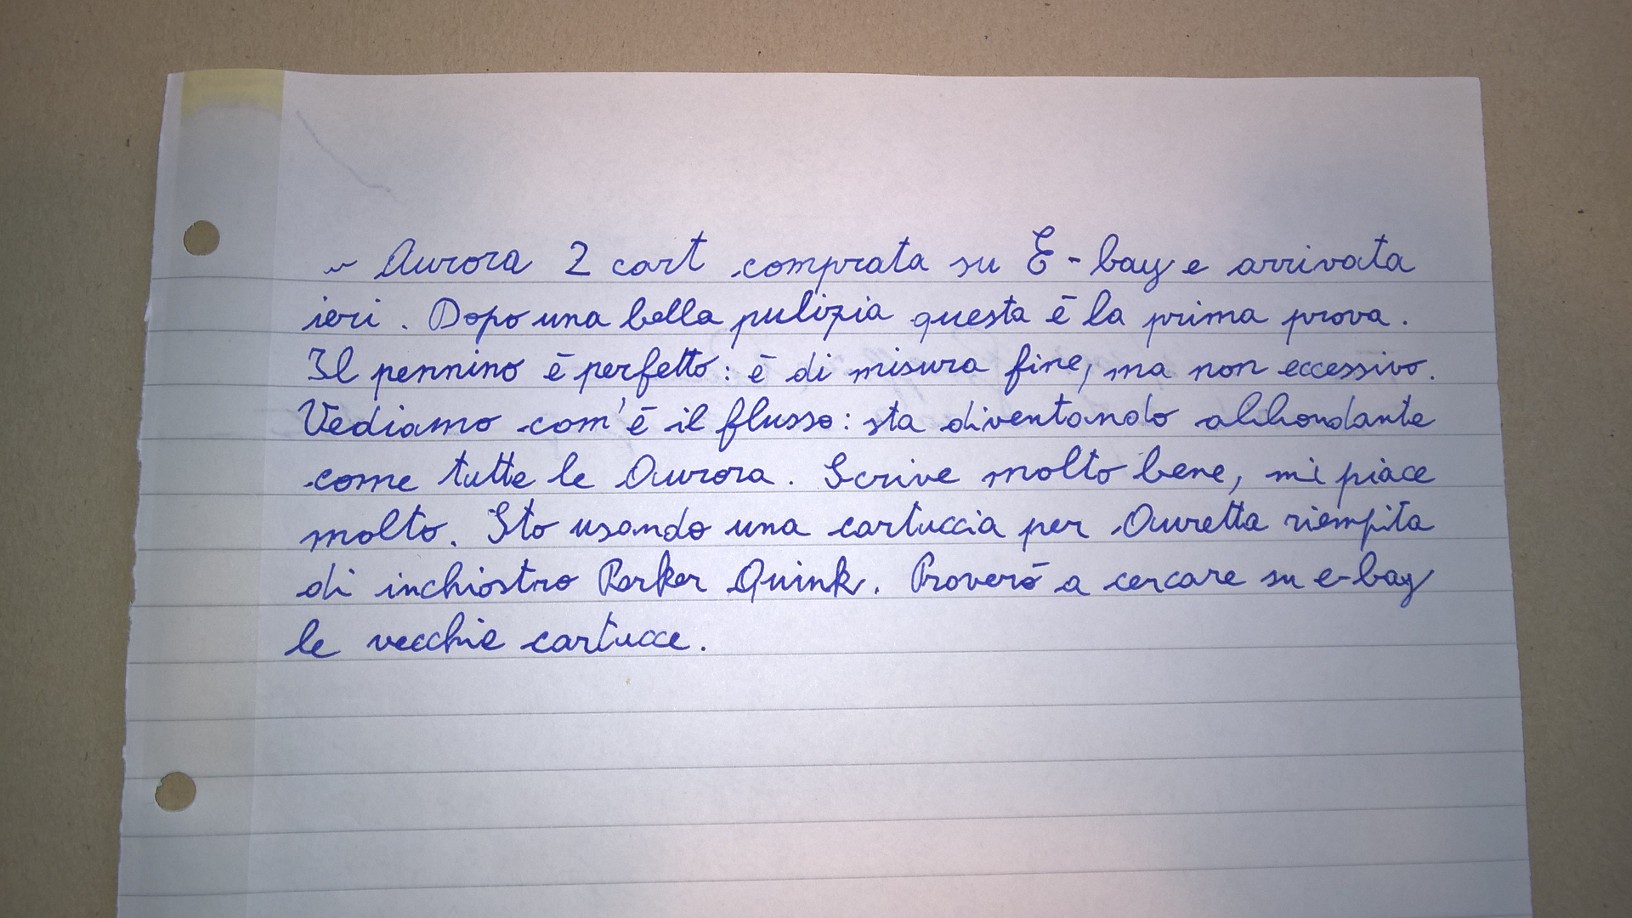 ~ Aurora 2 cart comprata su E-bay e arrivata
ieri. Dopo una bella pulizia questa è la prima prova.
Il pennino è perfetto: è di misura fine, ma non eccessivo.
Vediamo com'è il flusso: sta diventando abbondante
come tutte le Aurora. Scrive molto bene, mi piace
molto. Sto usando una cartuccia per Auretta riempita
di inchiostro Parker Quink. Proverò a cercare su e-bay
le vecchie cartucce.